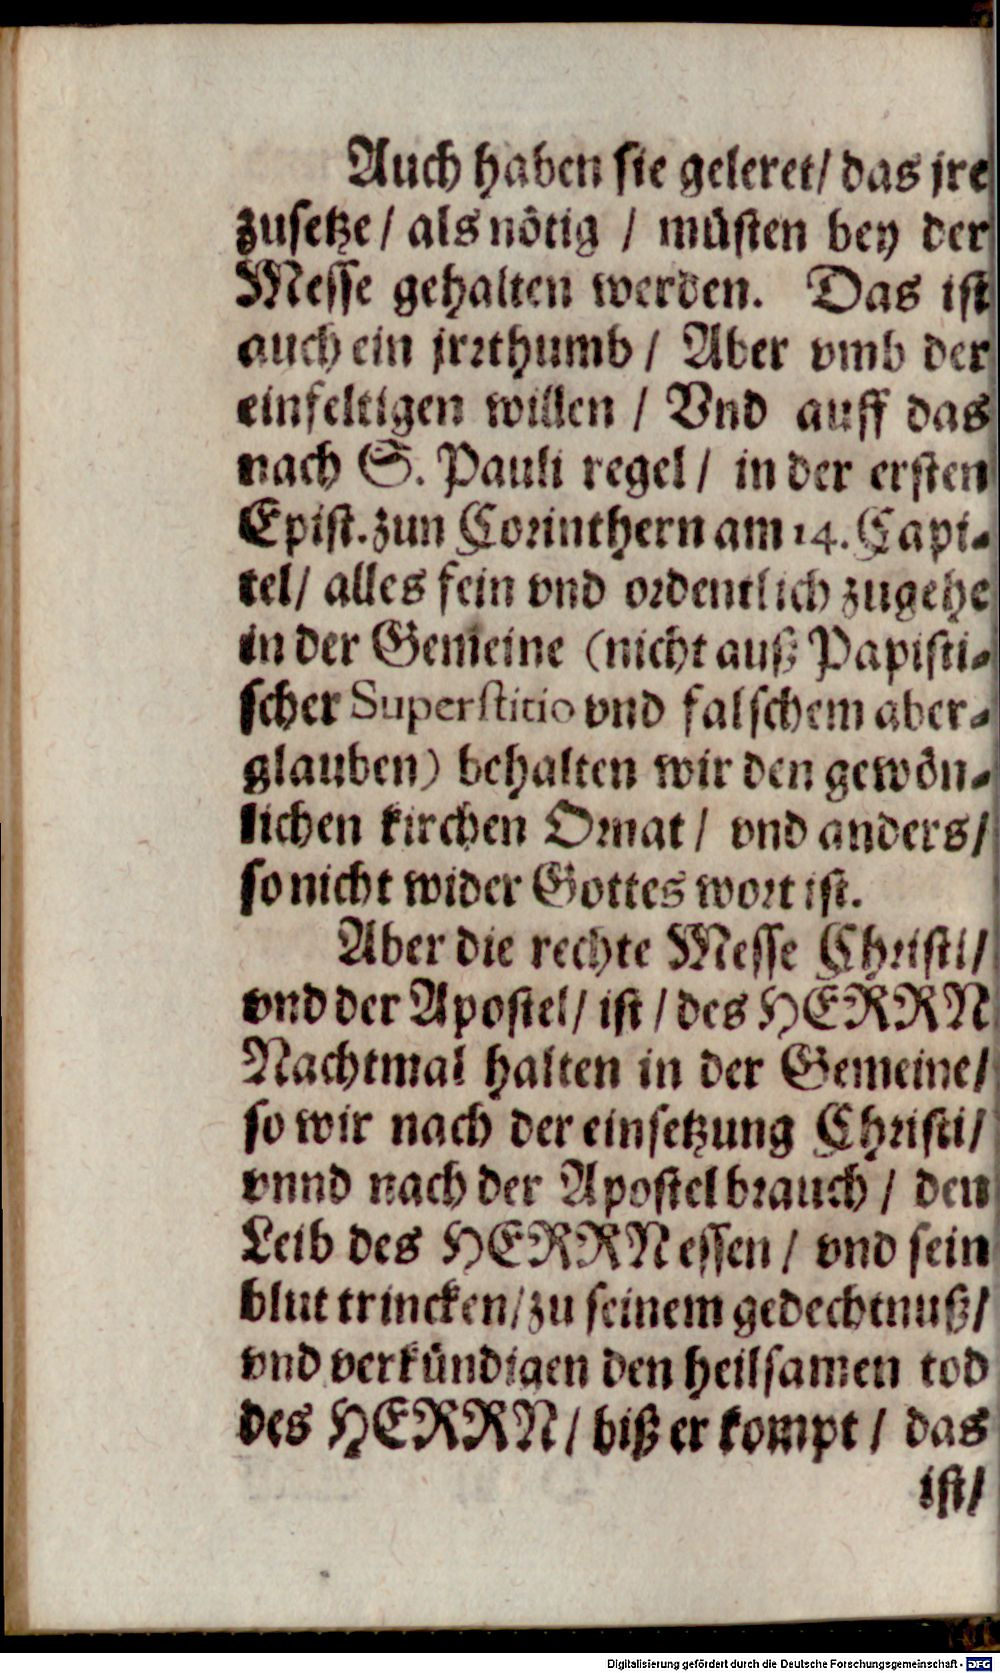 Auch haben sie geleret/ das jre
zusetze/ als nötig / müsten bey der
Messe gehalten werden. Das ist
auch ein jrrthumb/ Aber vmb der
einfeltigen willen / Vnd auff das
nach S. Pauli regel/ in der ersten
Epist. zun Corinthern am 14. Capi-
tel/ alles fein vnd ordentlich zugehe
in der Gemeine (nicht auß Papisti-
scher Superstitio vnd falschem aber-
glauben) behalten wir den gewön-
lichen kirchen Ornat/ vnd anders/
so nicht wider Gottes wort ist.
Aber die rechte Messe Christi/
vnd der Apostel/ ist/ des HERRN
Nachtmal halten in der Gemeine/
so wir nach der einsetzung Christi/
vnnd nach der Apostel brauch/ den
Leib des HERRN essen/ vnd sein
blut trincken/ zu seinem gedechtnuß/
vnd verkündigen den heilsamen tod
des HERRN/ biß er kompt/ das
ist/
Digitalisierung gefördert durch die Deutsche Forschungsgemeinschaft - DFG